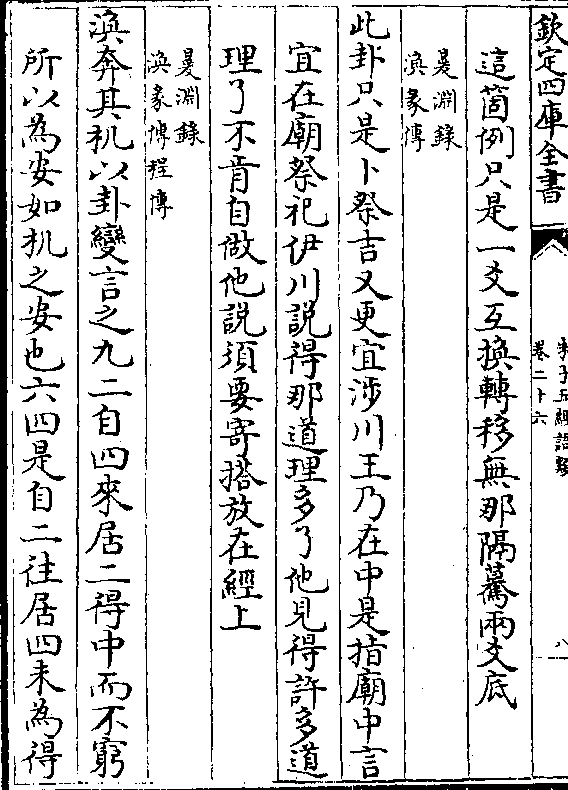 欽定四庫全書
朱子五經語類
卷二十六
八
這箇例只是一爻互換轉移無那隔驀兩爻底
㬊淵錄
渙彖傳
此卦只是卜祭吉又更宜涉川王乃在中是指廟中言
宜在廟祭祀伊川說得那道理多了他見得許多道
理了不肯自做他說須要寄搭放在經上
㬊淵錄
渙彖傳程傳
渙奔其机以卦變言之九二自四來居二得中而不窮
所以為安如机之安也六四是自二往居四未為得